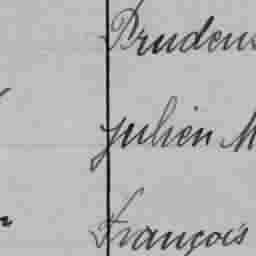 Prudens
Julien M
François